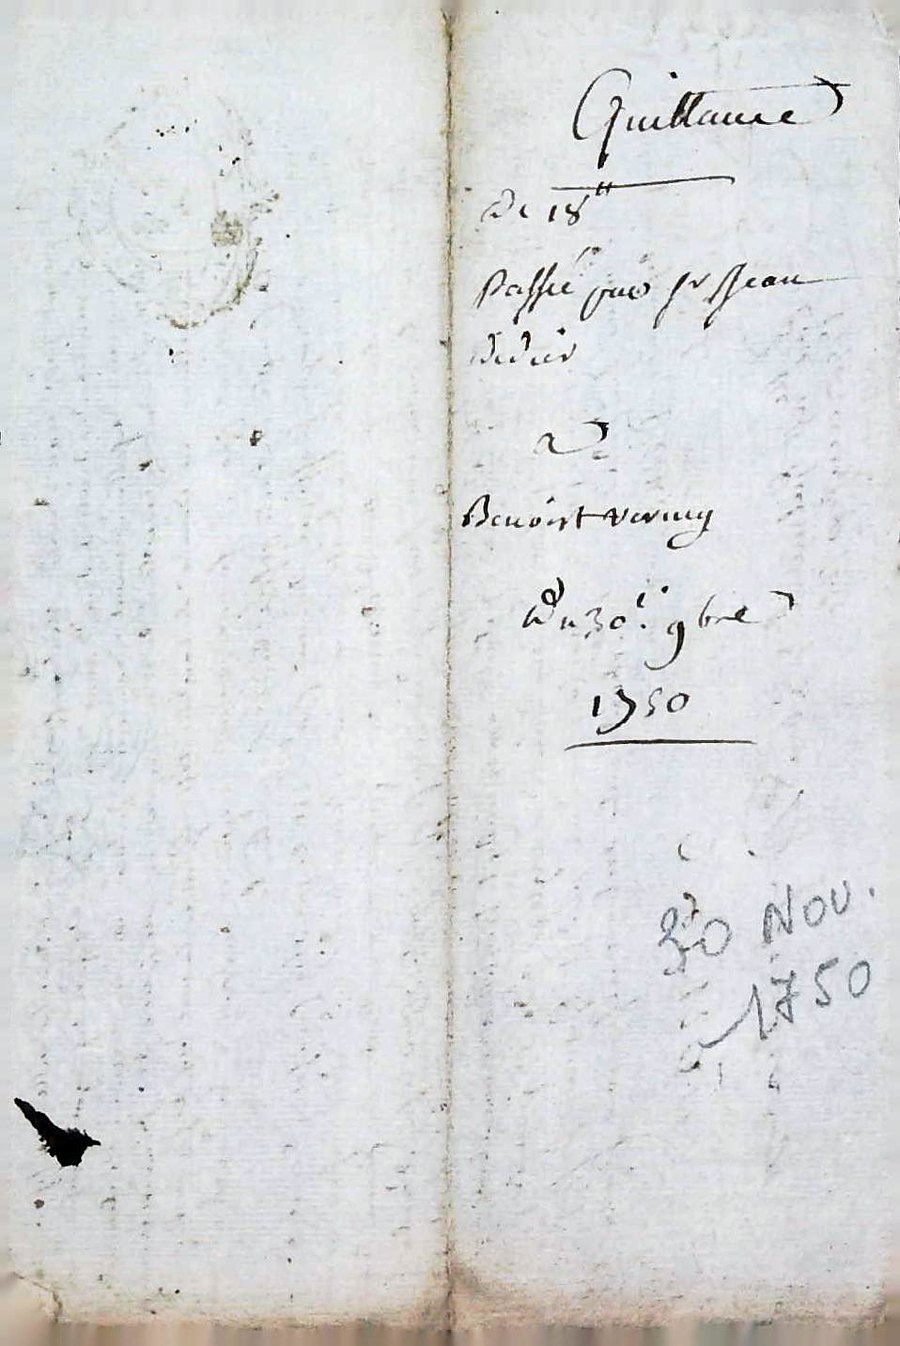 Quittance
de 18#
Passée par sr Jean
didier
a
Benoist verney
du 30e. 9bre
1750
30 Nov.
1750